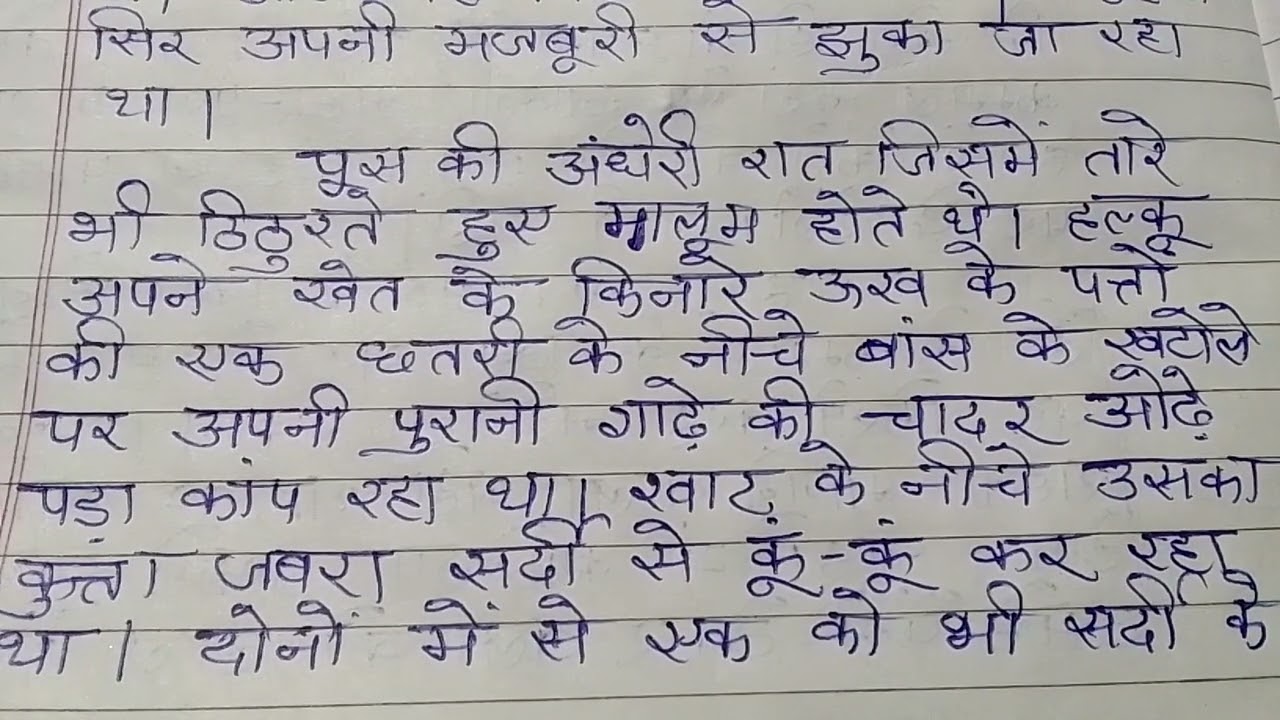 सिर अपनी मजबूरी से झुका जा रहा
था।
पूस की अंधेरी रात जिसमें तारे
भी ठिठुरते हुए मालूम होते थे। हल्कू
अपने खेत के किनारे ऊख के पत्तों
की एक छतरी के नीचे बांस के खटोले
पर अपनी पुरानी गाढ़े की चादर ओढ़े
पड़ा कांप रहा था। खाट के नीचे उसका
कुत्ता जबरा सर्दी से कूं-कूं कर रहा
था। दोनों में से एक को भी सर्दी के